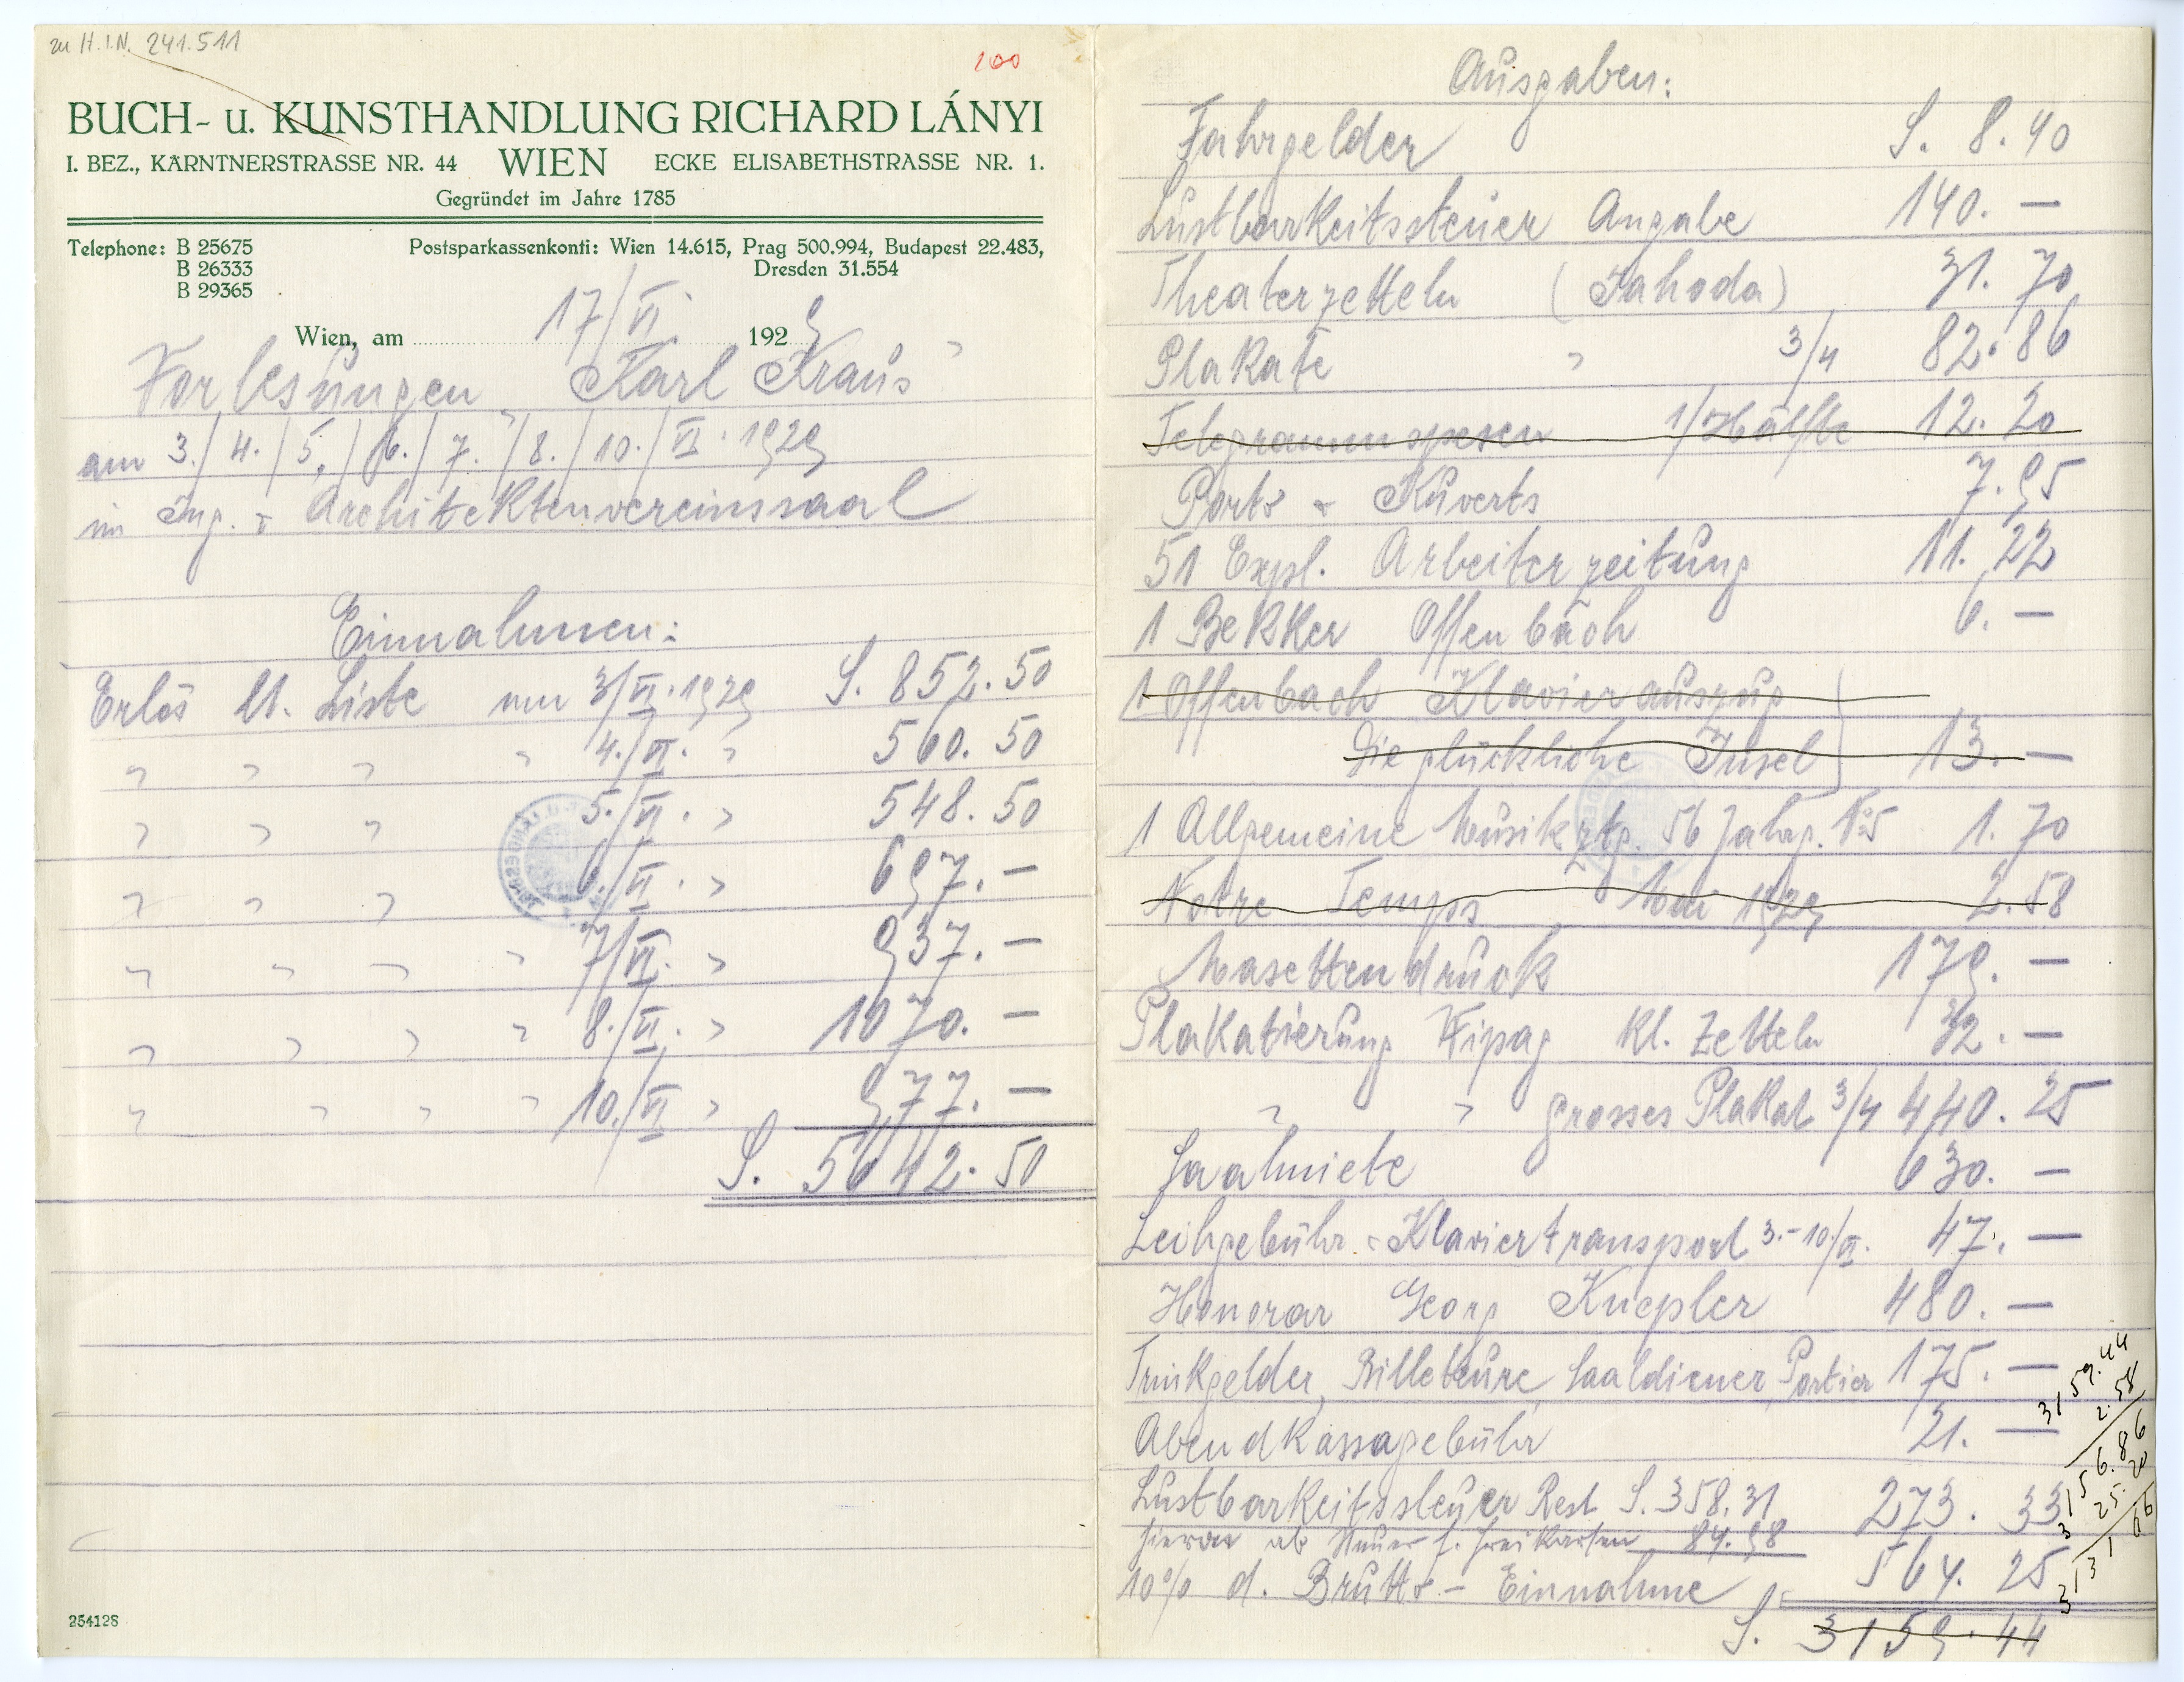 zu H.I.N. 241.511
100
BUCH- u. KUNSTHANDLUNG RICHARD LÁNYI
I. BEZ., KÄRNTNERSTRASSE NR. 44 WIEN ECKE ELISABETHSTRASSE NR. 1.
Gegründet im Jahre 1785
Telephone: B 25675
B 26333
B 29365
Postsparkassenkonti: Wien 14.615, Prag 500.994, Budapest 22.483,
Dresden 31.554
Wien, am 17/VI. 1929
Vorlesungen „Karl Kraus"
am 3./4./5./6./7./8./10./VI. 1929
im Ing. & Architektenvereinssaal
Einnahmen:
Erlös lt. Liste vom 3/VI. 1929 S. 852.50
" " " " 4./VI. " 560.50
" " " 5./VI. " 548.50
" " " 6./VI. " 697.—
" " " " 7/VI. " 937.—
" " " " 8./VI. " 1070.—
" " " " 10./VI " 977.—
S. 5642.50
254128
Ausgaben:
Fahrgelder S. 8.40
Lustbarkeitssteuer Angabe 140.—
Theaterzetteln (Jahoda) 31.70
Plakate " 3/4 82.86
Telegrammspesen 1/Hälfte 12.20
Porto & Kuverts 7.95
51 Expl. Arbeiterzeitung 11.22
1 Bekker Offenbach 6.—
1 Offenbach Klavierauszug
Die glückliche Insel } 13.—
1 Allgemeine Musikztg. 56 Jahrg. No 5 1.70
Notre Temps Mai 1929 2.58
Masettendruck 179.—
Plakatierung Wipag kl. Zetteln 32.—
" " grosses Plakat 3/4 440.25
Saalmiete 630.—
Leihgebühr & Klaviertransport 3.-10/VI. 47.—
Honorar Georg Knepler 480.—
Trinkgelder, Billeteure, Saaldiener, Portier 175.—
Abendkassagebühr 21.—
Lustbarkeitssteuer Rest S. 358.31 273.33
hievon ab Steuer f. Freikarten 84.98
10% d. Brutto-Einnahme 564.25
S. 3159.44
3159.44
2.58
3156.86
25.20
3131.66